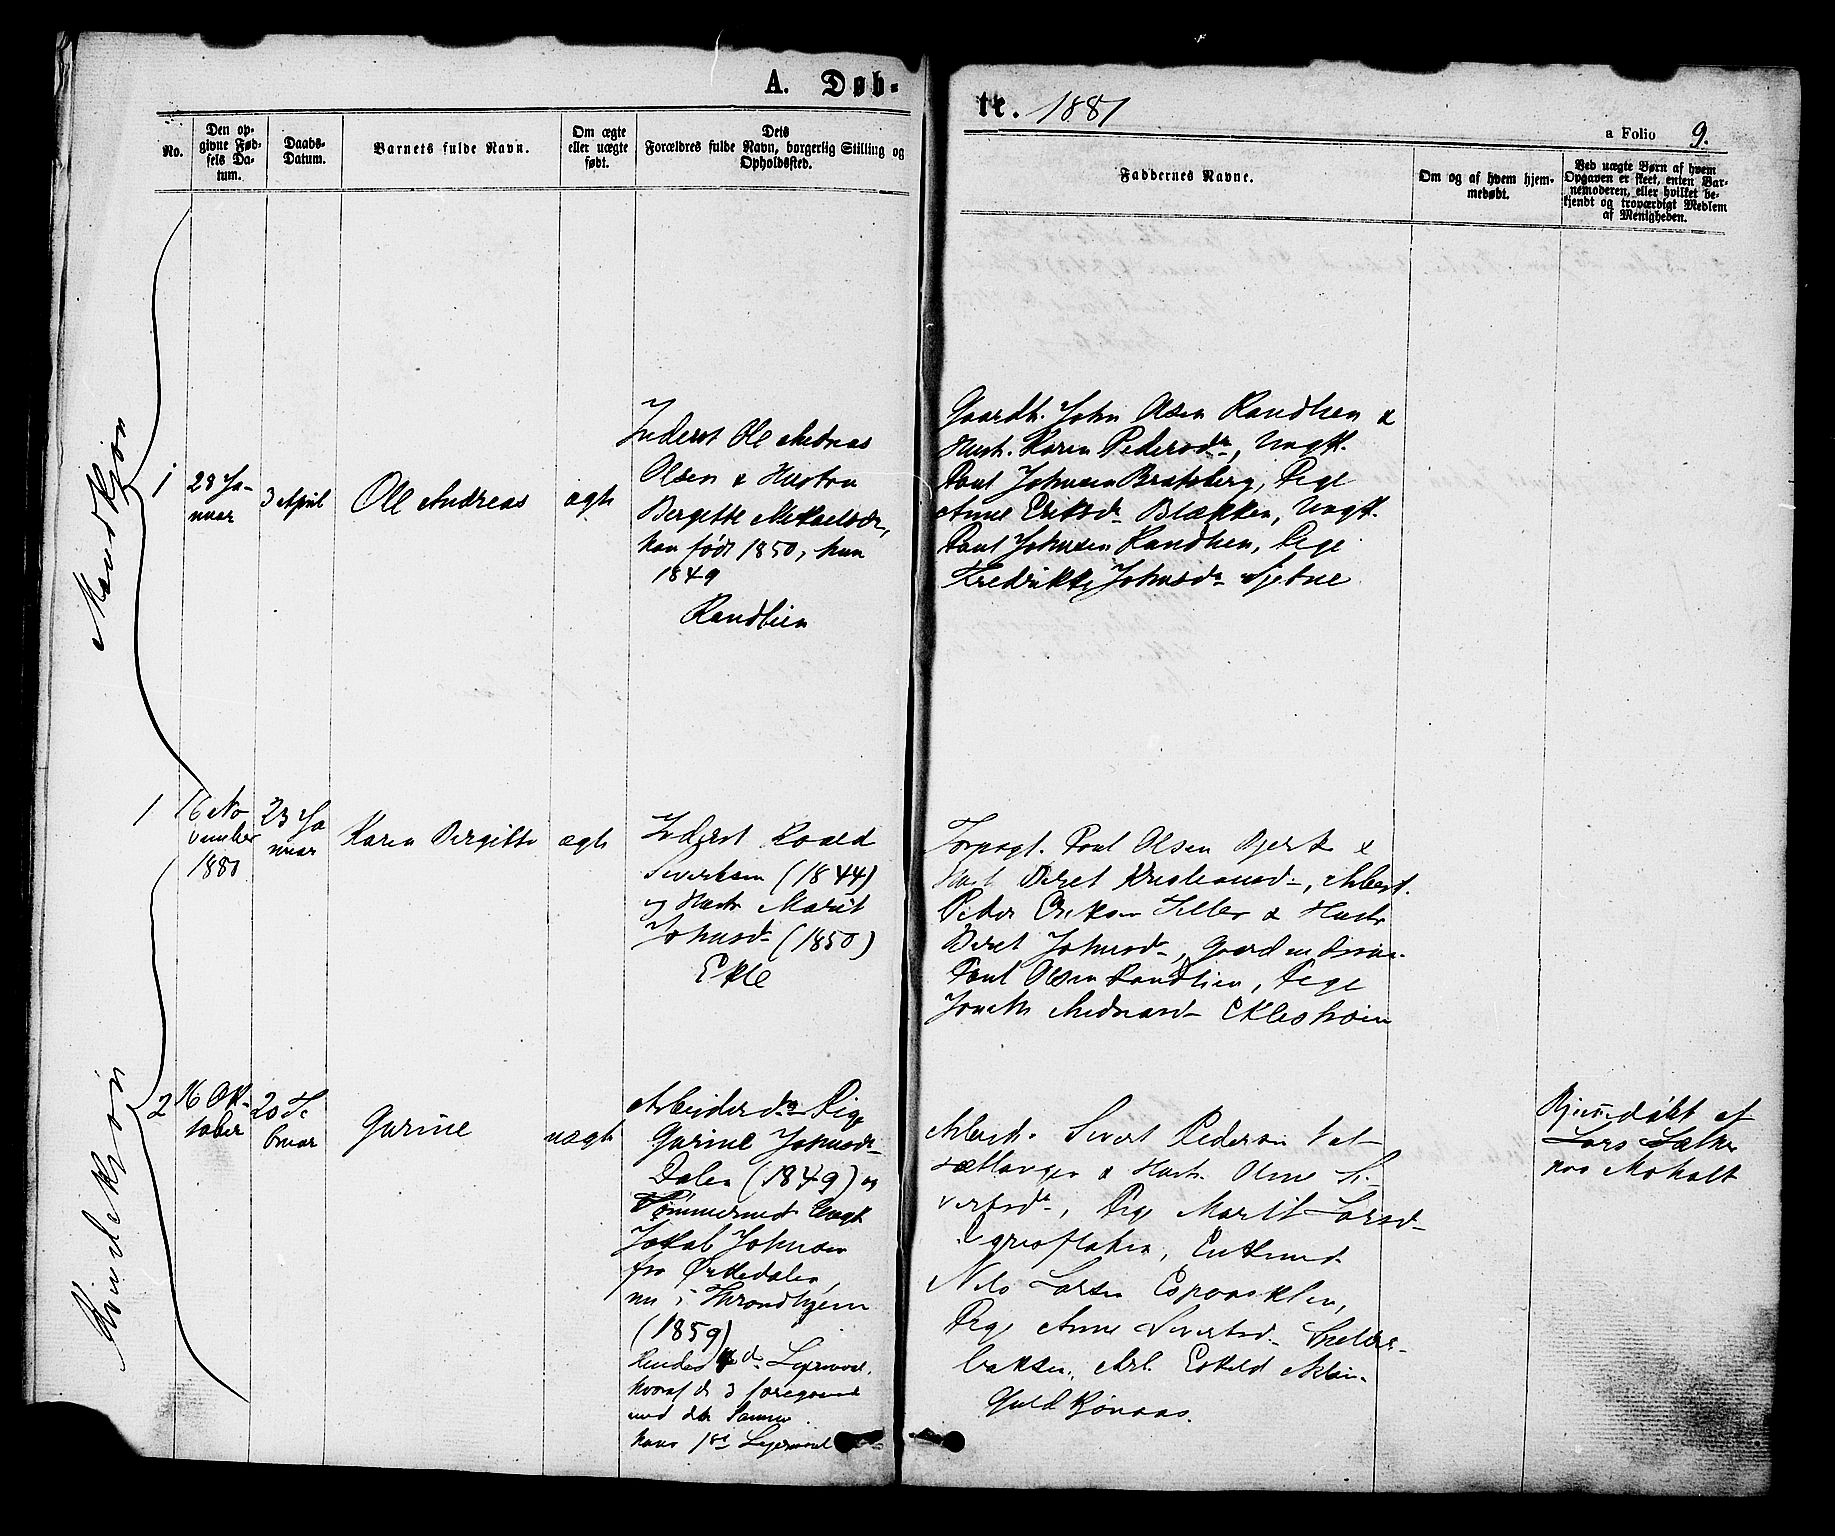 A. Døb-
te. 1881
a Folio 9.
No.
Den op-
givne Fød-
sels Da-
tum.
Daabs-
Datum.
Barnets fulde Navn.
Om ægte
eller uægte
født.
Dets
Forældres fulde Navn, borgerlig Stilling og
Opholdssted.
Faddernes Navne.
Om og af hvem hjem-
medøbt.
Ved uægte Børn af hvem
Opgaven er skeet, enten Bar-
nemoderen, eller hvilket be-
kjendt og troværdigt Medlem
af Menigheden.
Mandkjøn
1
28 Ja-
nuar
3 April
Ole Andreas
ægte
Inderst Ole Andreas
Olsen & Hustru
Bergitte Mikaelsdr,
han født 1850, hun
1849
Randlien
Gaardb. John Olsen Randlien &
Hust. Karen Pedersdr, Ungk.
Paul Johnsen Bratsberg, Pige
Anne Eriksdr Blækken, Ungk.
Paul Johnsen Randlien, Pige
Fredrikke Johnsdr Sjetne
1
16 No
vember
1880
23 Ja
nuar
Karen Bergitte
ægte
Inderst Roald
Sivertsen (1844)
og Hustr Marit
Johnsd (1850)
Ekle
Forpagt. Paul Olsen Bjerke &
Hust Beret Kristiansd, Arbeid.
Peder Eriksen Tiller & Hustr
Beret Johnsd,
Paul Olsen Randlien, Pige
Andreasd Ekleshøin
Kvindekjøn
2
16 Ok-
tober
20 Fe
bruar
Gurine
uægte
Arbeider og Pige
Gurine Johnsdr
Dalen (1849) og
Tømmermd Ungk
Jakob Johnsen
fra Ørkedalen,
nu i Throndhjem
(1859)
Hendes 4de Leiermaal,
hvoraf de 3 foregaaende
med den Samme.
hans 1ste Leiermaal
Arbeid. Sivert Pedersen
& Hustr.
vertsdr, Pige Marit Larsd
Enkemd
Nils Larsen Espaasklev,
Pige Anne Sivertsd.
bakken, Arb. Eskild
Hjemmedøbt af
Lars Sæther
paa Moholt